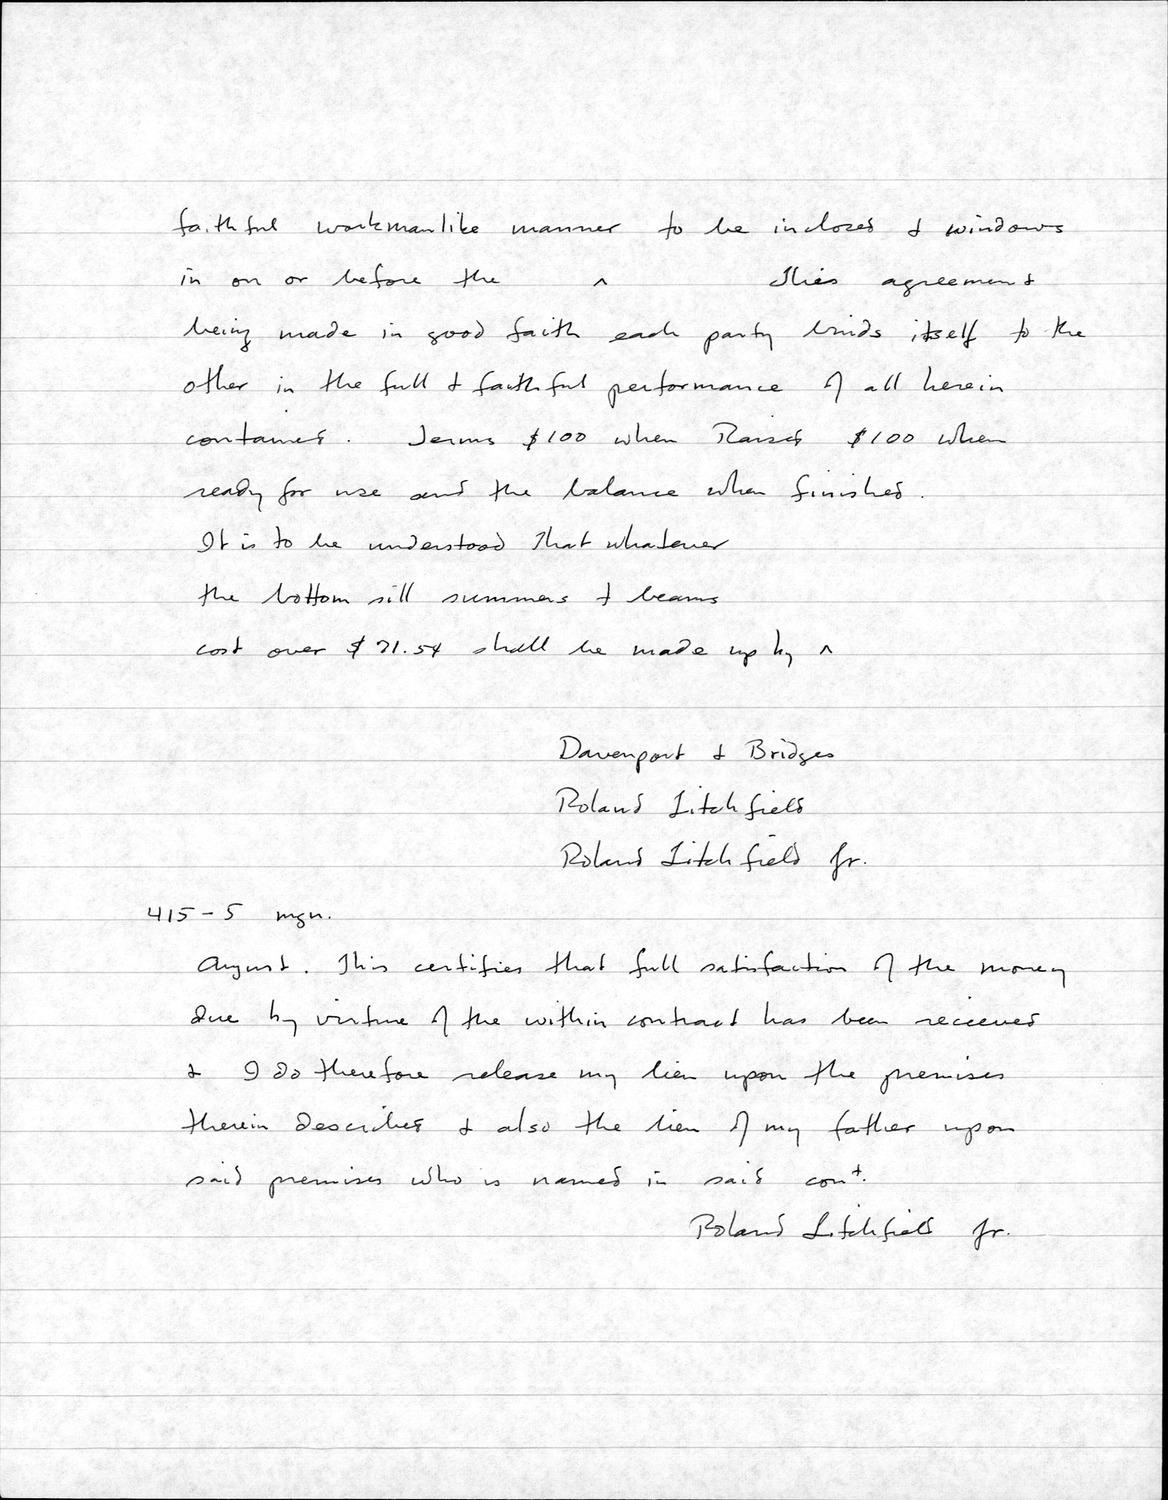 faithful workmanlike manner to be inclosed & windows
in on or before the ^ This agreement
being made in good faith each party binds itself to the
other in the full & faithful performance of all herein
contained. Terms $100 when Raised $100 when
ready for use and the balance when finished.
It is to be understood that whatever
the bottom sill summers & beams
cost over $71.54 shall be made up by ^
Davenport & Bridges
Roland Litchfield
Roland Litchfield Jr.
415-5 mgn.
August. This certifies that full satisfaction of the money
due by virtue of the within contract has been recieved
& I do therefore release my lien upon the premises
therein described & also the lien of my father upon
said premises who is named in said cont.
Roland Litchfield Jr.